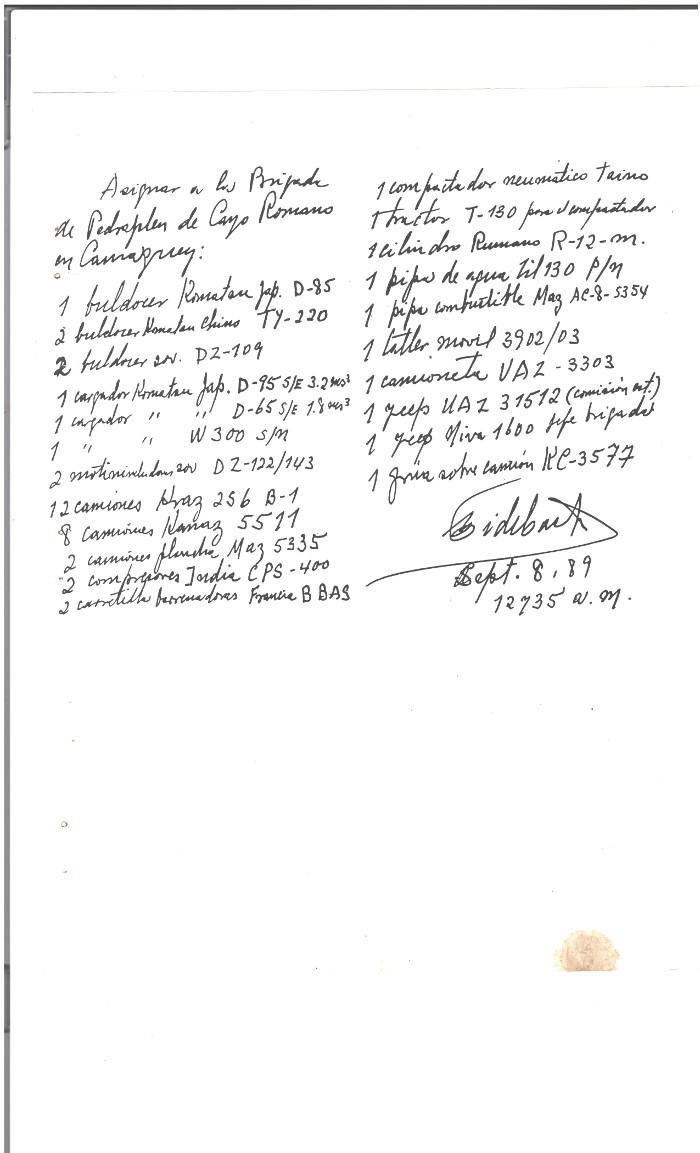 Asignar a la Brigada
de Pedraplen de Cayo Romano
en Camaguey:
1 buldocer Komatsu Jap. D-85
2 buldocer Komatsu Chino TY-220
2 buldocer sov. DZ-109
1 cargador Komatsu Jap. D-95 S/E 3.2 ms³
1 cargador " " D-65 S/E 1.8 ms³
1 " " W 300 S/N
2 motoniveladoras sov DZ-122/143
12 camiones Kraz 256 B-1
8 camiones Kamaz 5511
2 camiones plancha Maz 5335
2 compresores India CPS-400
2 carretilla barrenadoras Francia B BAS
1 compactador neumático Taino
1 tractor T-130 para el compactador
1 cilindro Rumano R-12-m.
1 pipa de agua Zil 130 P/N
1 pipa combustible Maz AC-8-5354
1 taller movil 3902/03
1 camioneta UAZ-3303
1 yeep UAZ 31512 (comisión est.)
1 yeep Niva 1600 jefe brigada
1 grúa sobre camión KC-3577
Sept. 8, 89
12 y 35 a.m.